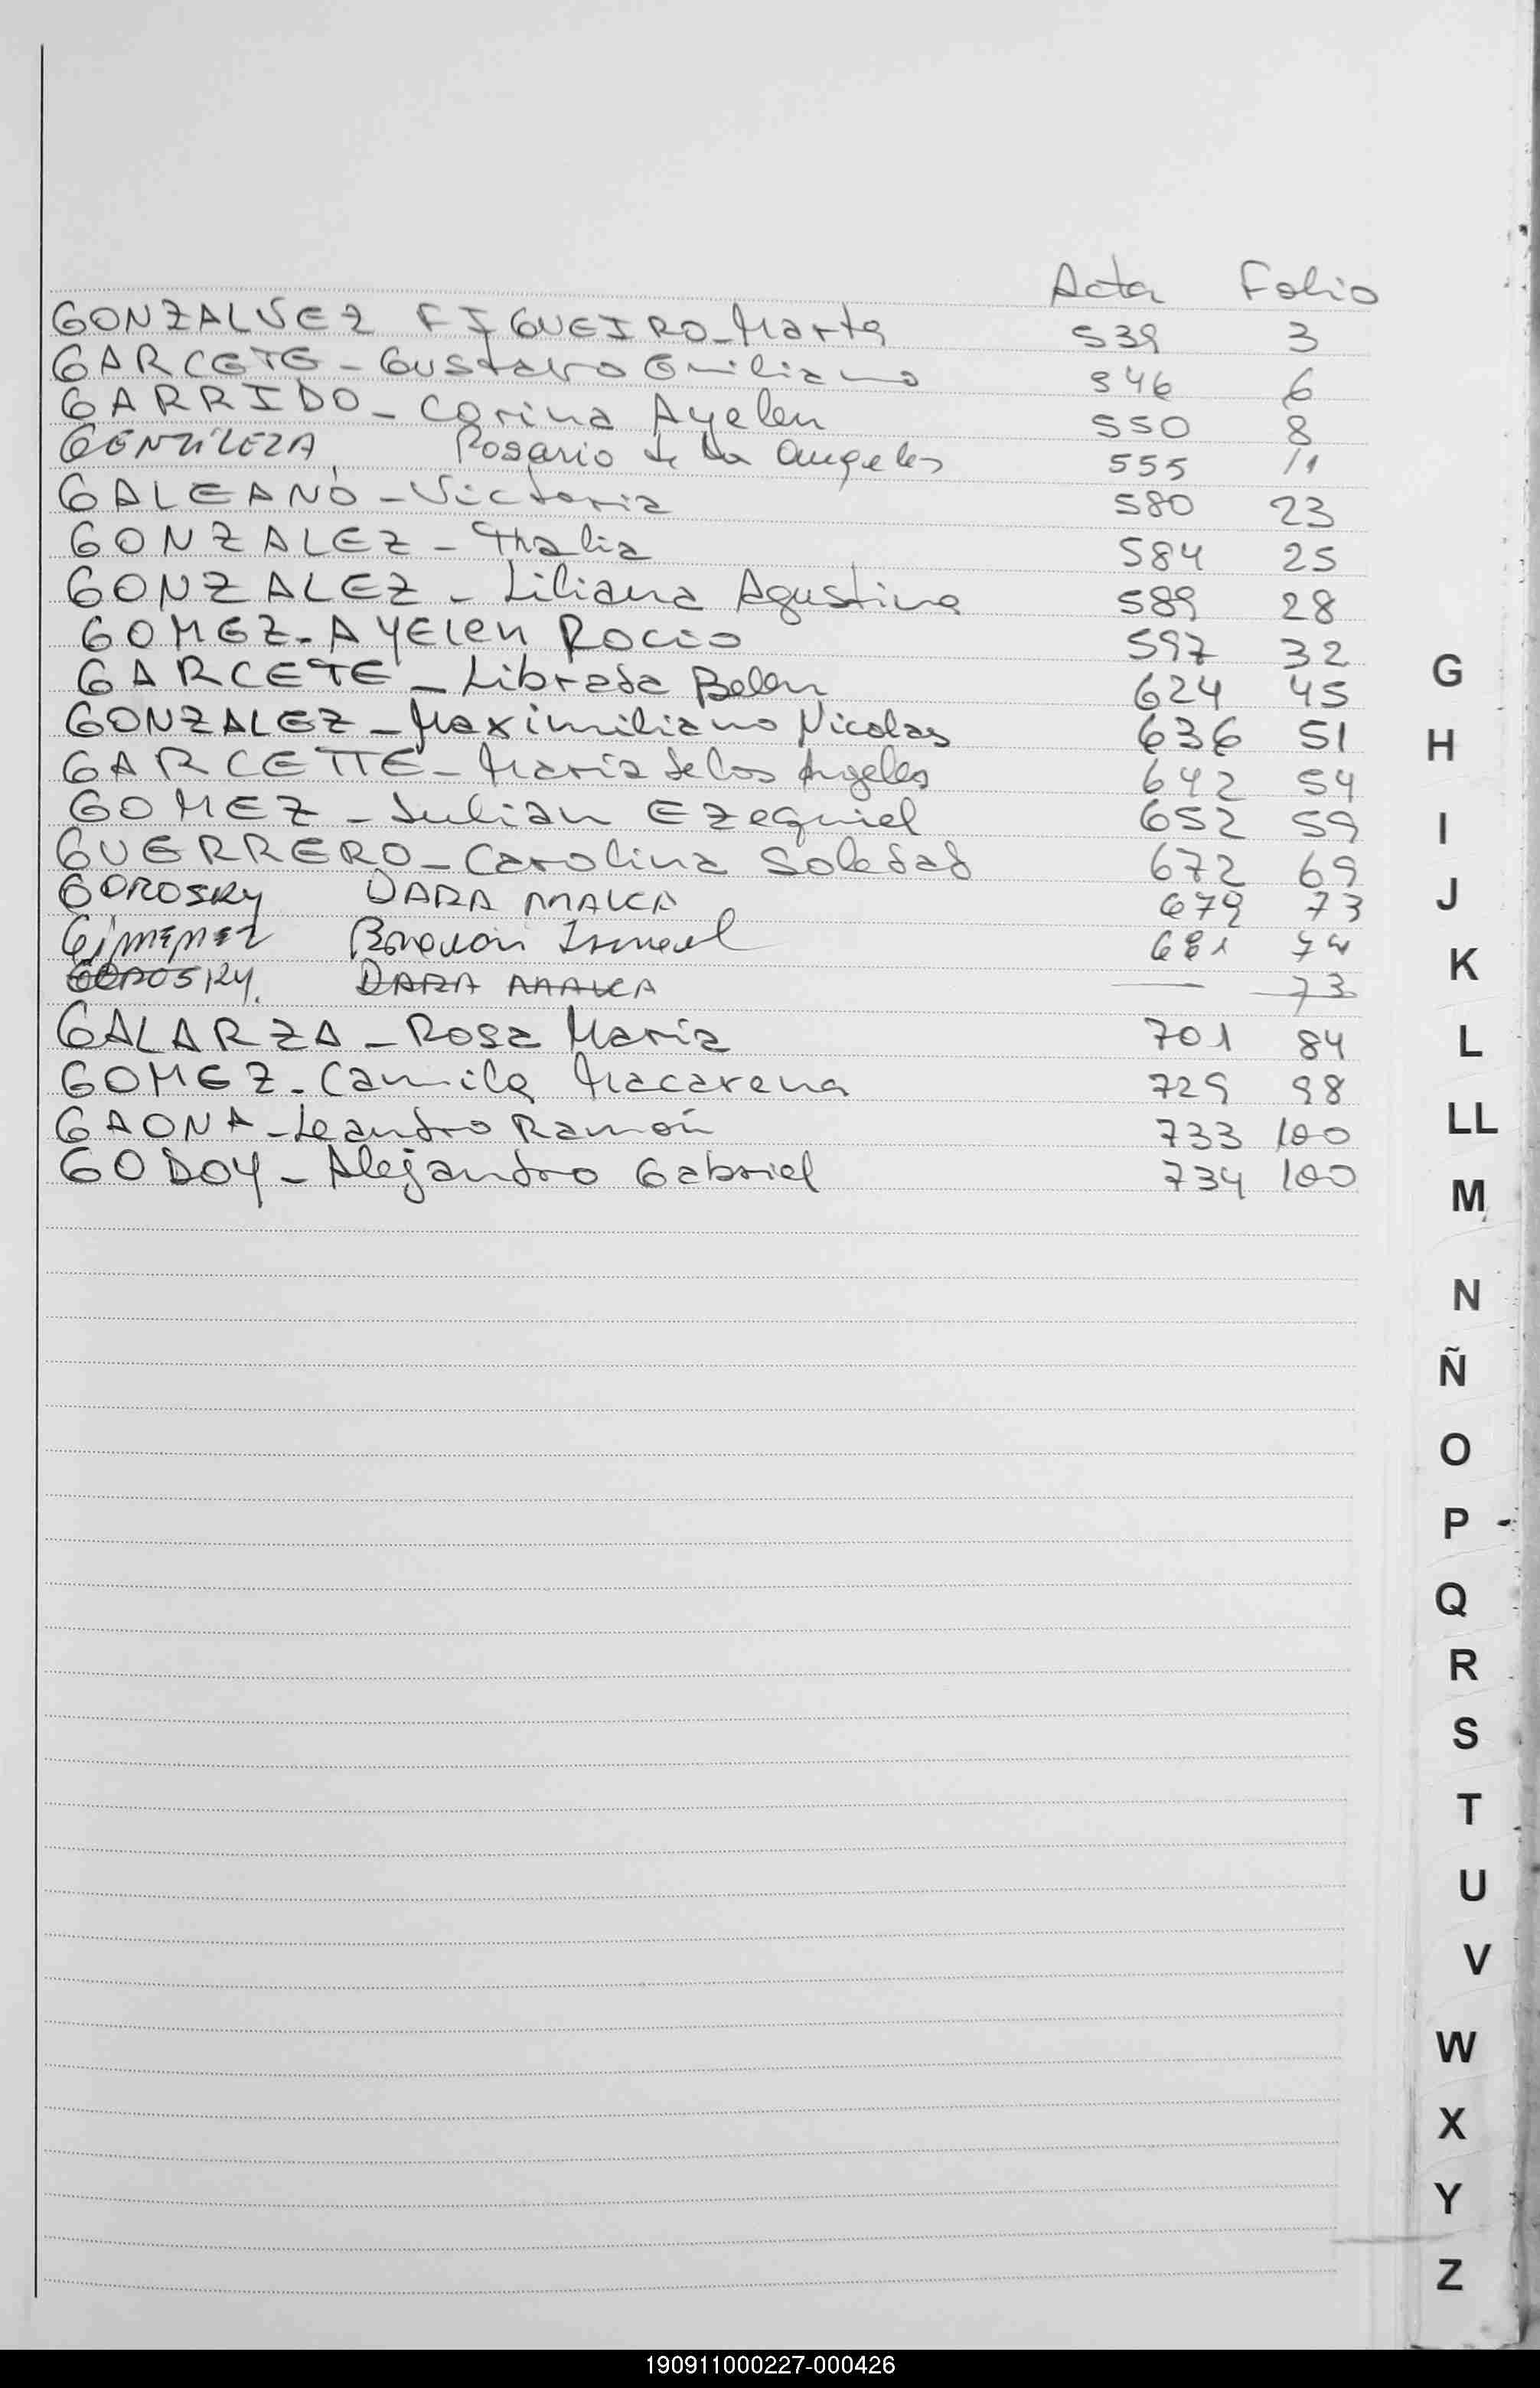 Acta Folio
GONZALVEZ FIGUEIRO - Marta 539 3
GARCETE - Gustavo Emiliano 546 6
GARRIDO - Corina Ayelen 550 8
GENTILEZA, Rosario de los Angeles 555 11
GALEANO - Victoria 580 23
GONZALEZ - Thalia 584 25
GONZALEZ - Liliana Agustina 589 28
GOMEZ - AYELEN ROCIO 597 32
GARCETE - Librada Belen 624 45
GONZALEZ - Maximiliano Nicolas 636 51
GARCETTE - Maria de los Angeles 642 54
GOMEZ - Julian EZequiel 652 59
GUERRERO - Carolina Soledad 672 69
GOROSKY DARA MALKA 679 73
Gimenez Ismael 681 74
GOROSKY. DARA MALKA — 73
GALARZA - Rosa Maria 701 84
GOMEZ - Camila Macarena 729 98
GAONA - Leandro Ramón 733 100
GODOY - Alejandro Gabriel 734 100
G
H
I
J
K
L
LL
M
N
Ñ
O
P
Q
R
S
T
U
V
W
X
Y
Z
190911000227-000426